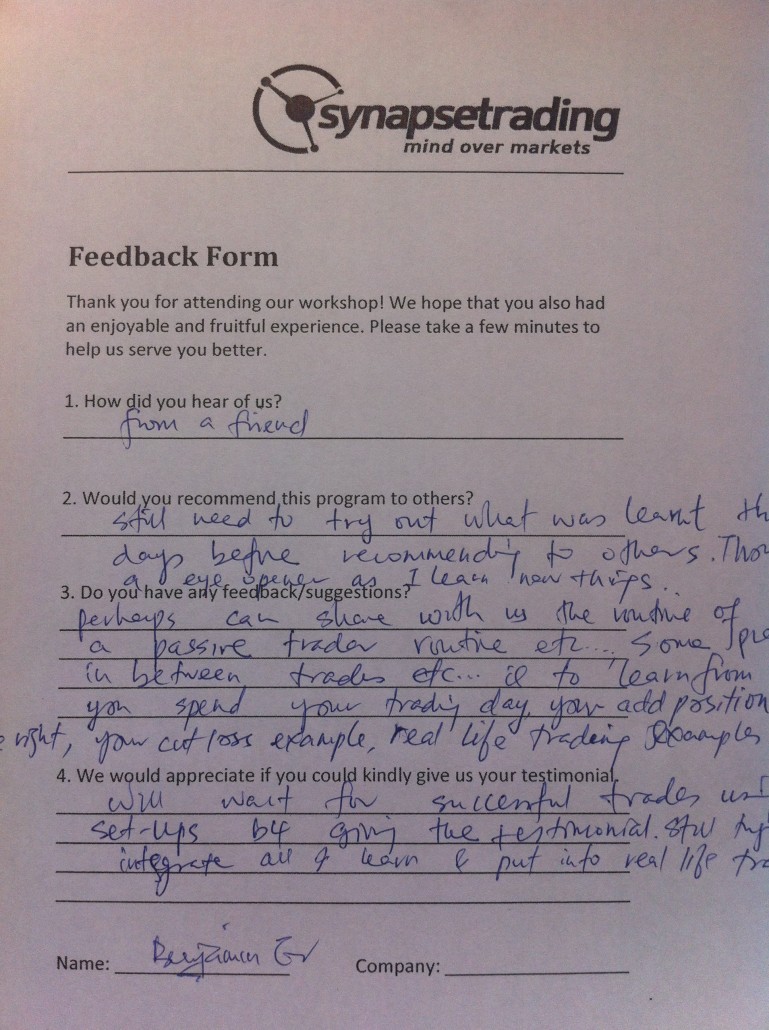 synapsetrading
mind over markets
Feedback Form
Thank you for attending our workshop! We hope that you also had
an enjoyable and fruitful experience. Please take a few minutes to
help us serve you better.
1. How did you hear of us?
from a friend
2. Would you recommend this program to others?
still need to try out what was learnt th
days before recommending to others. Thou
a eye opener as I learn new things.
3. Do you have any feedback/suggestions?
perhaps can share with us the routine of
a passive trader routine etc.... Some
in between trades etc... to learn from
you spend your trading day, your add position
right, your cut loss example, real life trading examples
4. We would appreciate if you could kindly give us your testimonial.
will wait for successful trades usi
set-ups b4 giving the testimonial. Still
integrate all I learn & put into real life tra
Name: Benjamin
Company: